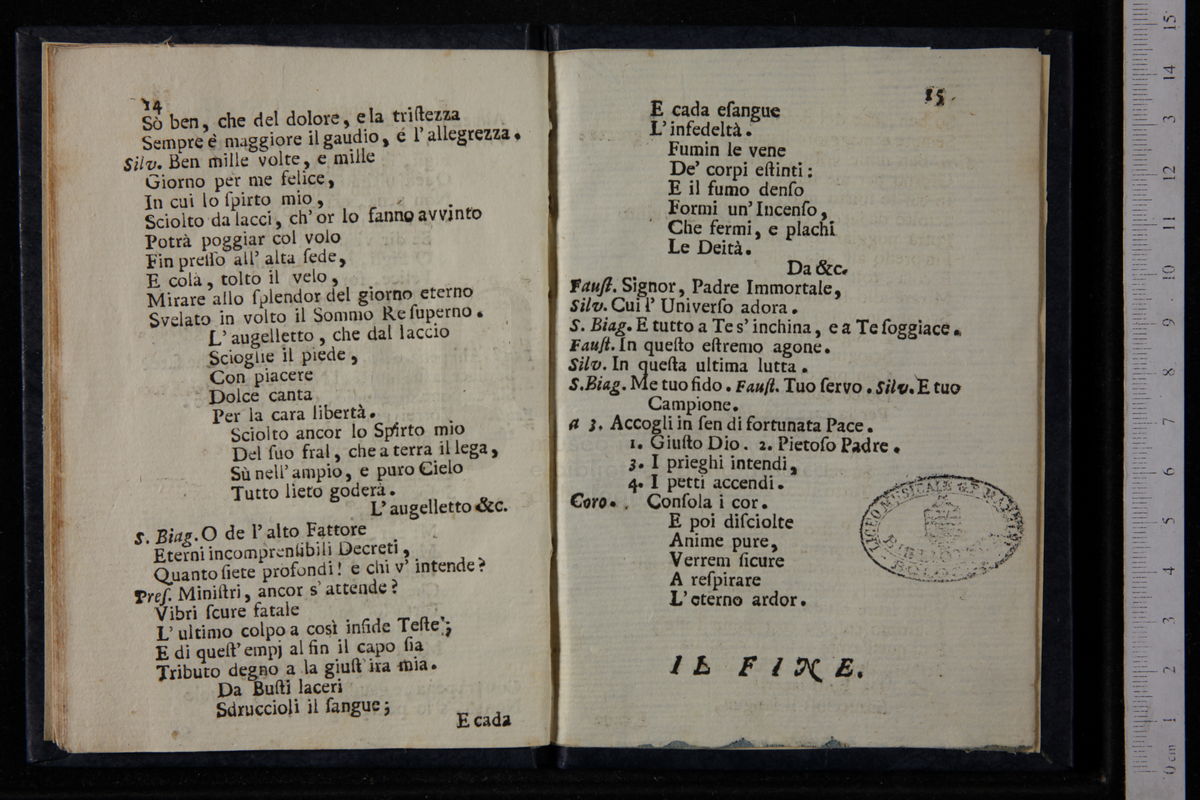 14
Sò ben, che del dolore, e la triſtezza
Sempre è maggiore il gaudio, é l'allegrezza.
Silv. Ben mille volte, e mille
Giorno per me felice,
In cui lo ſpirto mio,
Sciolto da lacci, ch'or lo fanno avvinto
Potrà poggiar col volo
Fin preſſo all'alta ſede,
E colà, tolto il velo,
Mirare allo ſplendor del giorno eterno
Svelato in volto il Sommo Re ſuperno.
L'augelletto, che dal laccio
Scioglie il piede,
Con piacere
Dolce canta
Per la cara libertà.
Sciolto ancor lo Spirto mio
Del ſuo fral, che a terra il lega,
Sù nell'ampio, e puro Cielo
Tutto lieto goderà.
L'augelletto &c.
S. Biag. O de l'alto Fattore
Eterni incomprenſibili Decreti,
Quanto ſiete profondi! e chi v'intende?
Preſ. Miniſtri, ancor s'attende?
Vibri ſcure fatale
L'ultimo colpo a così infide Teſte;
E di queſt'empj al fin il capo ſia
Tributo degno a la giuſt'ira mia.
Da Buſti laceri
Sdruccioli il ſangue;
E cada
15.
E cada eſangue
L'infedeltà.
Fumin le vene
De' corpi eſtinti:
E il fumo denſo
Formi un'Incenſo,
Che fermi, e plachi
Le Deità.
Da &c.
Fauſt. Signor, Padre Immortale,
Silv. Cui l'Univerſo adora.
S. Biag. E tutto a Te s'inchina, e a Te ſoggiace.
Fauſt. In queſto eſtremo agone.
Silv. In queſta ultima lutta.
S. Biag. Me tuo fido. Fauſt. Tuo ſervo. Silv. E tuo
Campione.
a 3. Accogli in ſen di fortunata Pace.
1. Giuſto Dio. 2. Pietoſo Padre.
3. I prieghi intendi,
4. I petti accendi.
Coro. Conſola i cor.
E poi diſciolte
Anime pure,
Verrem ſicure
A reſpirare
L'eterno ardor.
LICEO MUSICALE G.B. MARTINI
BIBLIOTECA
BOLOGNA
IL FINE.
0 cm 1 2 3 4 5 6 7 8 9 10 11 12 3 14 15